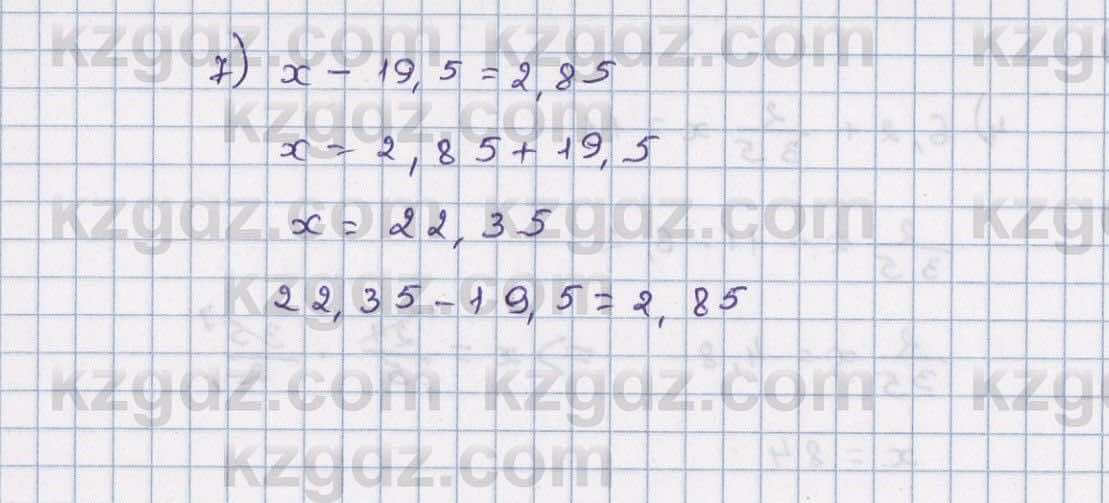 7) x - 19,5 = 2,85
x = 2,85 + 19,5
x = 22,35
22,35 - 19,5 = 2,85
kzgdz.com kzgdz.com kzgdz
kzgdz.com
kzgdz.com kzgdz.com kzgdz
kzgdz.com
kzgdz.com kzgdz.com kzgdz
kzgdz.com